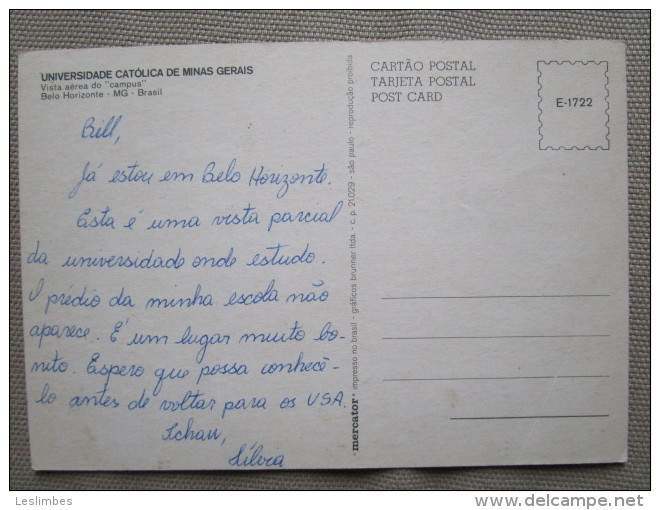 UNIVERSIDADE CATÓLICA DE MINAS GERAIS
Vista aérea do "campus"
Belo Horizonte - MG - Brasil
Bill,
Já estou em Belo Horizonte.
Esta é uma vista parcial
da universidade onde estudo.
O prédio da minha escola não
aparece. É um lugar muito bo-
nito. Espero que possa conhecê-
lo antes de voltar para os USA.
Tchau,
Sílvia
mercator • impresso no brasil - gráficos brunner ltda. - c. p. 21.029 - são paulo - reprodução proibida
CARTÃO POSTAL
TARJETA POSTAL
POST CARD
E-1722
Leslimbes
delcampe.net